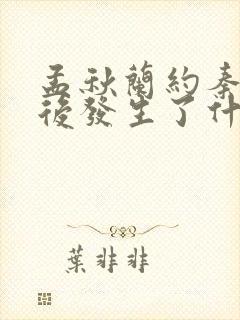 孟秋蘭約秦
後發生了什
葉非非